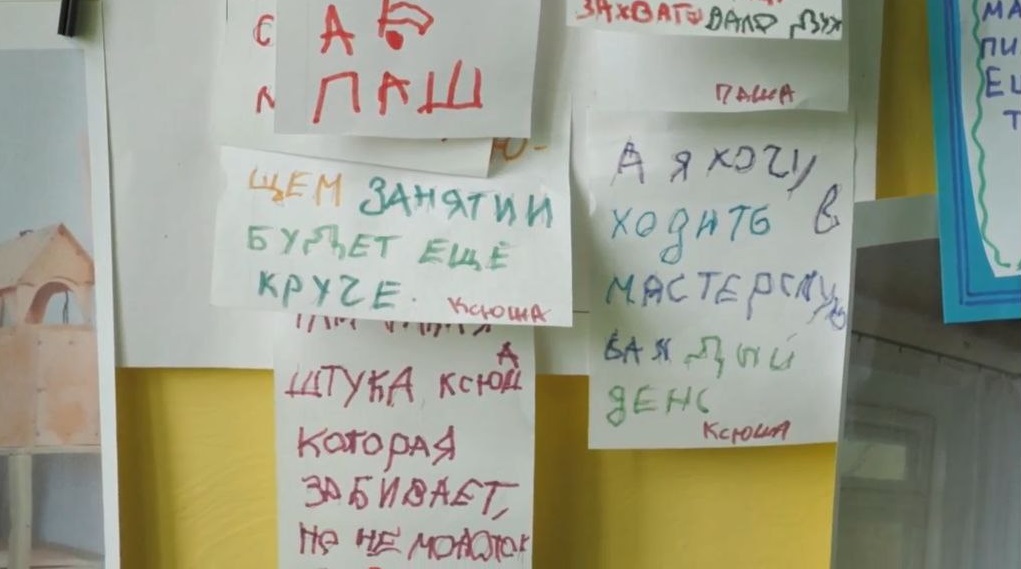 С
А
ПАШ
ЗАХВАТОВАЛО ДУХ
ПАША
ЩЕМ ЗАНЯТИИ
БУДЕТ ЕЩЁ
КРУЧЕ.
КСЮША
ШТУКА КСЮША
КОТОРАЯ
ЗАБИВАЕТ,
НО НЕ МОЛОТОК
А Я ХОЧУ
ХОДИТЬ В
МАСТЕРСКУЮ
КАЖДЫЙ
ДЕНЬ
КСЮША
МА
ПИ
ЕЩ
Т